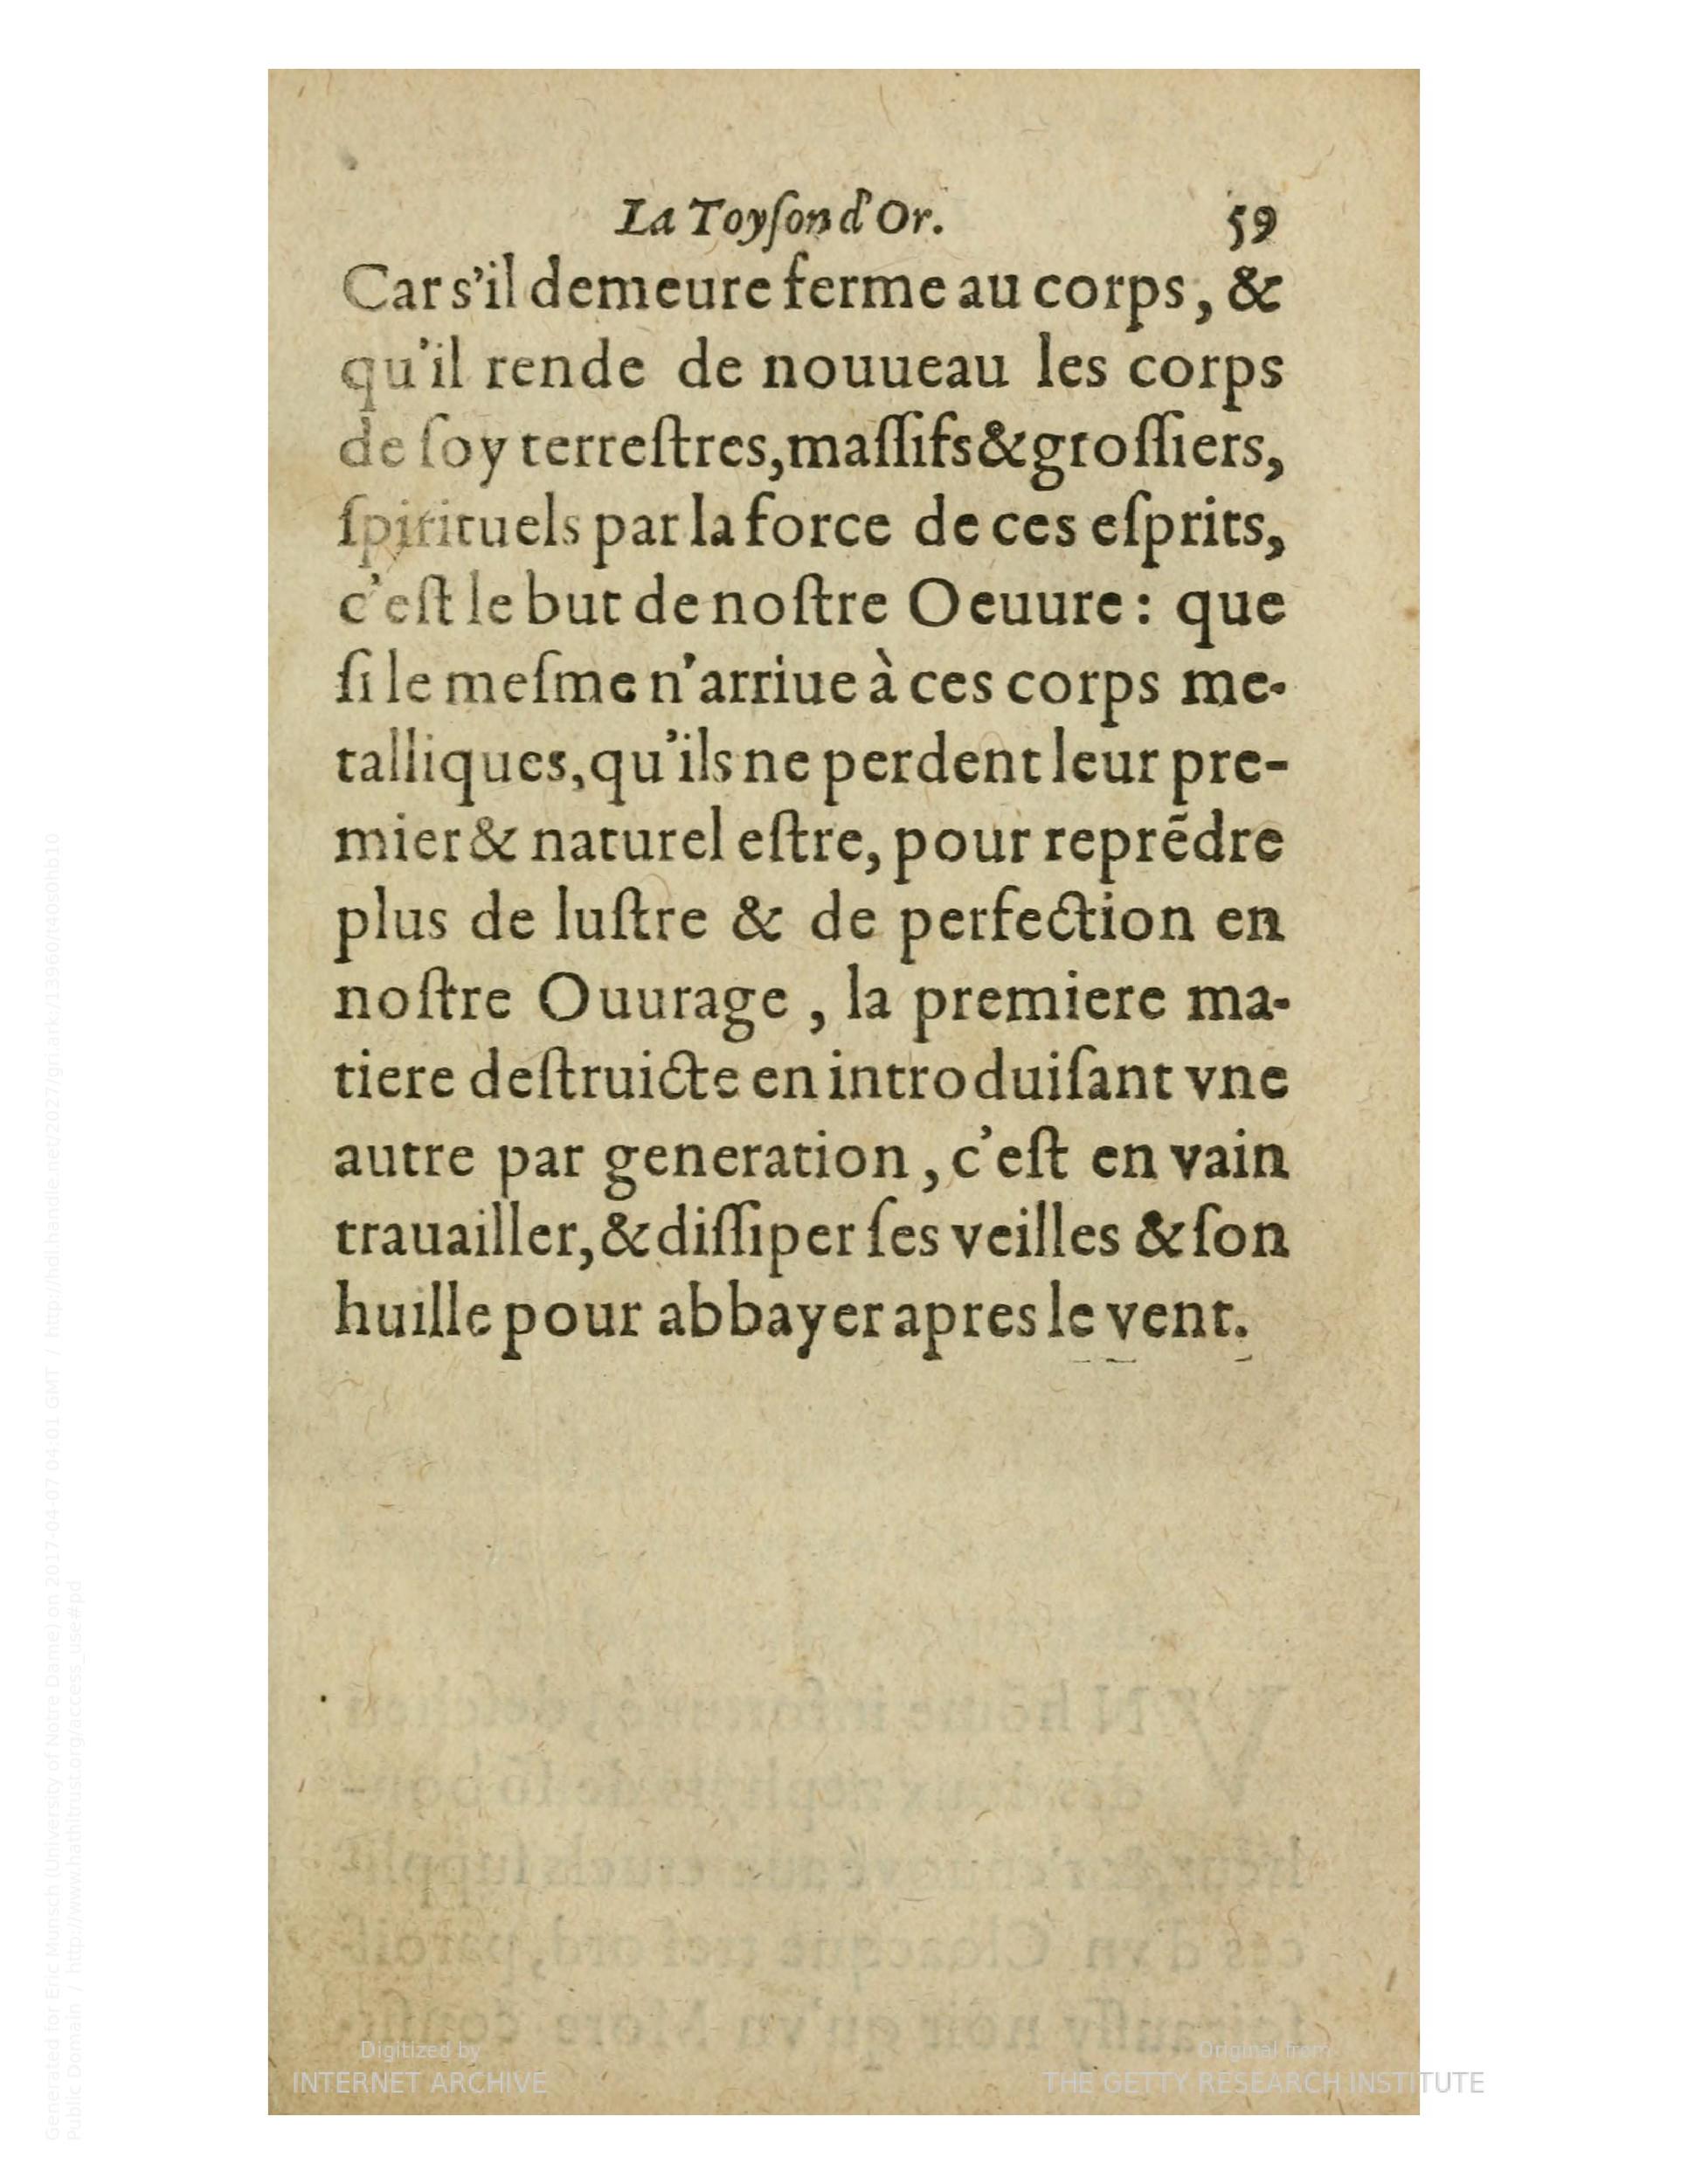 La Toyſon d'Or. 59
Car s'il demeure ferme au corps, &
qu'il rende de nouueau les corps
de ſoy terreſtres, maſſifs & groſſiers,
ſpirituels par la force de ces eſprits,
c'eſt le but de noſtre Oeuure : que
ſi le meſme n'arriue à ces corps me-
talliques, qu'ils ne perdent leur pre-
mier & naturel eſtre, pour reprẽdre
plus de luſtre & de perfection en
noſtre Ouurage , la premiere ma-
tiere deſtruicte en introduiſant vne
autre par generation, c'eſt en vain
trauailler, & diſſiper ſes veilles & ſon
huille pour abbayer apres le vent.
Digitized by
INTERNET ARCHIVE
Original from
THE GETTY RESEARCH INSTITUTE
Generated for Eric Munsch (University of Notre Dame) on 2017-04-07 04:01 GMT / http://hdl.handle.net/2027/gri.ark:/13960/t40s0hb10
Public Domain / http://www.hathitrust.org/access_use#pd